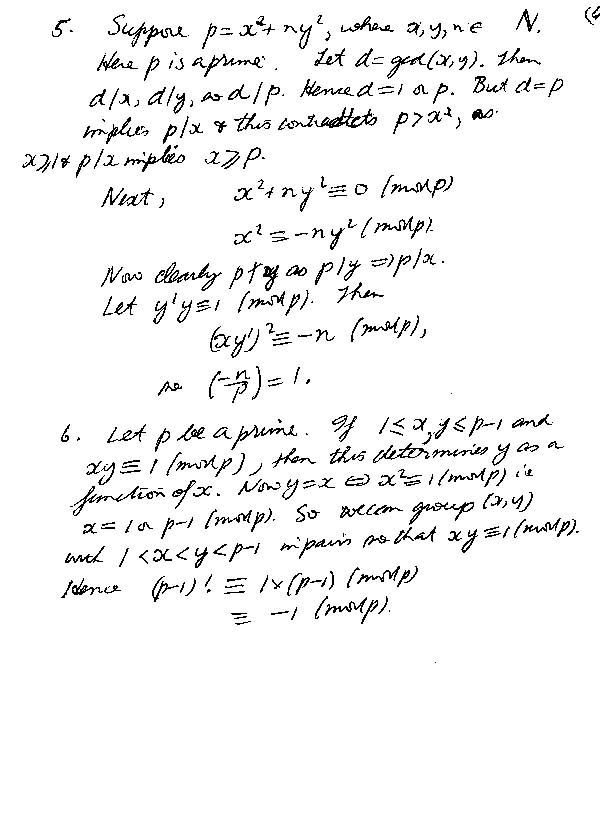 (4
5. Suppose p = x² + ny², where x, y, n ∈ N.
Here p is a prime. Let d = gcd(x,y). Then
d/x, d/y, so d/p. Hence d = 1 or p. But d = p
implies p/x & this contradicts p > x², as
x ≥ 1 & p/x implies x ≥ p.
Next, x² + ny² ≡ 0 (mod p)
x² ≡ -ny² (mod p).
Now clearly p ∤ y as p/y ⇒ p/x.
Let y'y ≡ 1 (mod p). Then
(xy')² ≡ -n (mod p),
so (-n/p) = 1.
6. Let p be a prime. If 1 ≤ x, y ≤ p-1 and
xy ≡ 1 (mod p), then this determines y as a
function of x. Now y = x ⇔ x² ≡ 1 (mod p) ie
x = 1 or p-1 (mod p). So we can group (x,y)
with 1 < x < y < p-1 in pairs so that xy ≡ 1 (mod p).
Hence (p-1)! ≡ 1×(p-1) (mod p)
≡ -1 (mod p).